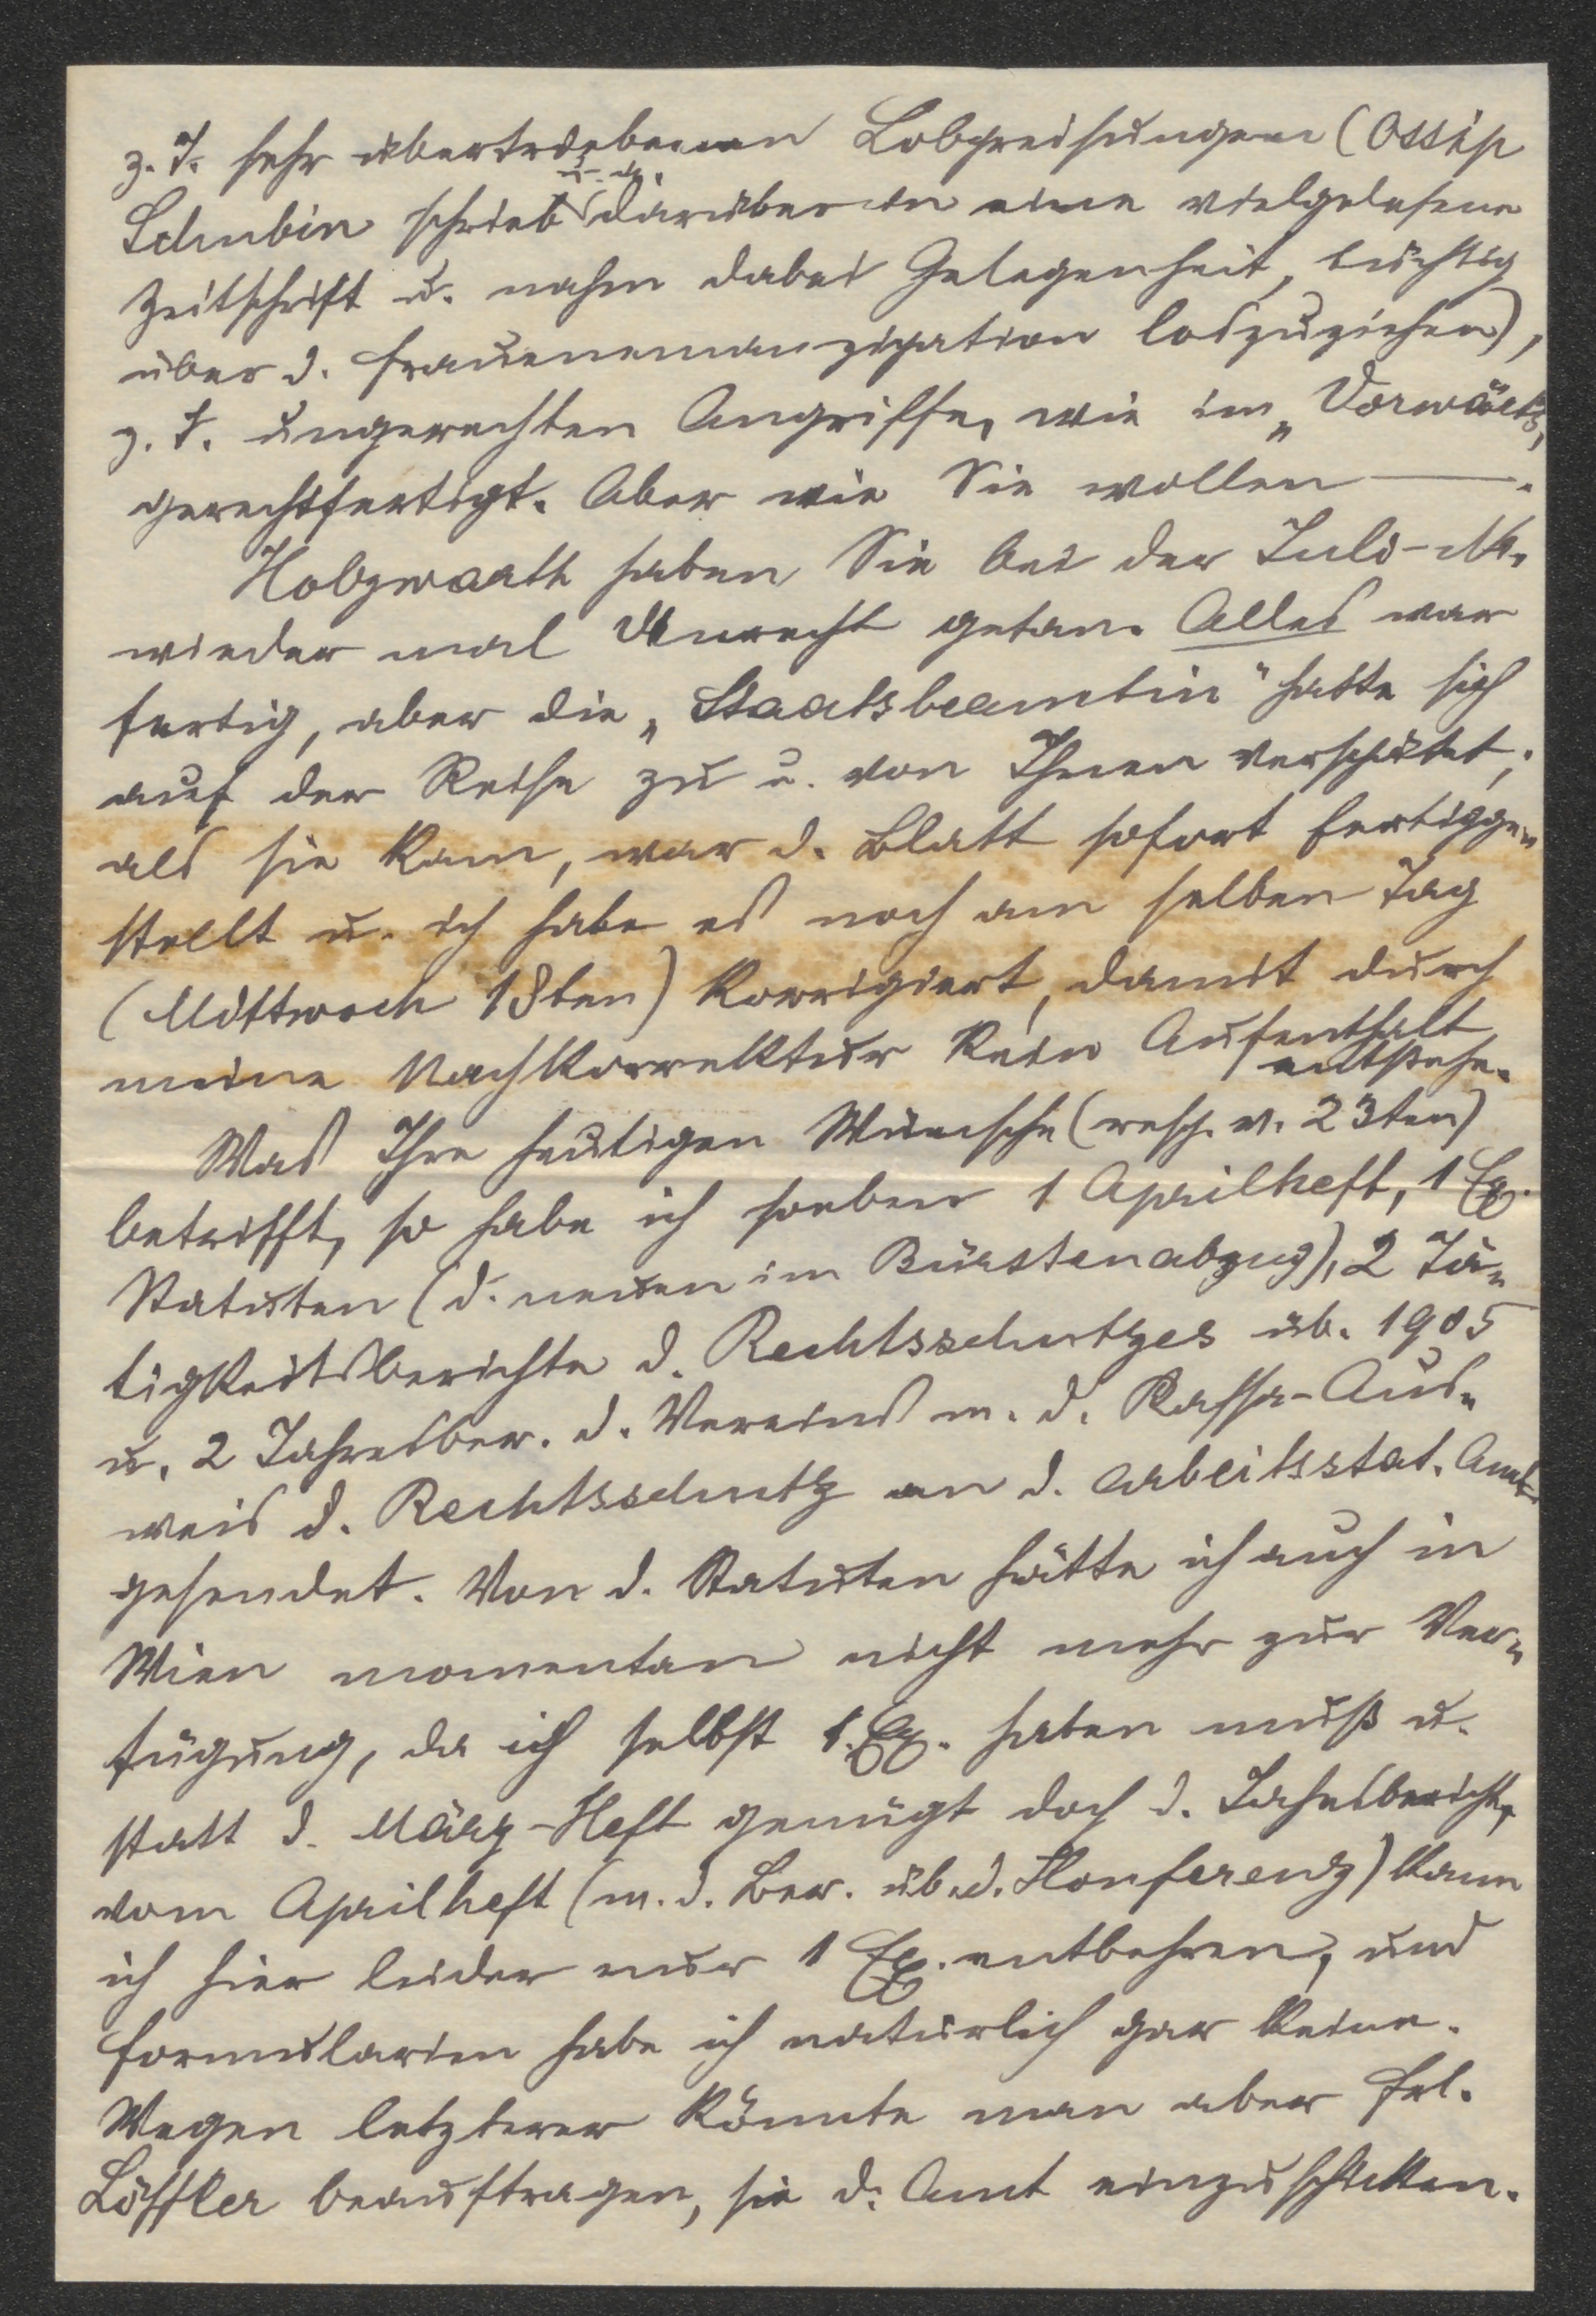 z. T. sehr übertriebenen Lobpreisungen (Ossip
u. a.
Schubin schrieb darüber in eine vielgelesene
Zeitschrift u. nahm dabei Gelegenheit, tüchtig
über d. Frauenemanzipation loszuziehen),
z. T. ungerechten Angriffe, wie im „Vorwärts“,
gerechtfertigt. Aber wie Sie wollen —.
Holzwarth haben Sie bei der Juli-N.
wieder mal Unrecht getan. Alles war
fertig, aber die „Staatsbeamtin“ hatte sich
auf der Reise zu u. von Ihnen verspätet;
als sie kam, war d. Blatt sofort fertigge-
stellt u. ich habe es noch am selben Tag
(Mittwoch 18ten) korrigiert, damit durch
meine Nachkorrektur kein Aufenthalt
entstehe.
Was Ihre heutigen Wünsche (resp. v. 23ten)
betrifft, so habe ich soeben 1 Aprilheft, 1 Ex.
Statuten (d. neuen im Bürstenabzug), 2 Tä-
tigkeitsberichte d. Rechtsschutzes üb. 1905
u. 2 Jahresber. d. Vereins m. d. Kassa-Aus-
weis d. Rechtsschutz an d. arbeitsstat. Amt
gesendet. Von d. Statuten hätte ich auch in
Wien momentan nicht mehr zur Ver-
fügung, da ich selbst 1 Ex. haben muß u.
statt d. März-Heft genügt doch d. Jahresbericht,
vom Aprilheft (m. d. Ber. üb. d. Konferenz) kann
ich hier leider nur 1 Ex. entbehren, und
Formularien habe ich natürlich gar keine.
Wegen letzterer könnte man aber Frl.
Löffler beauftragen, sie d. Amt einzuschicken.